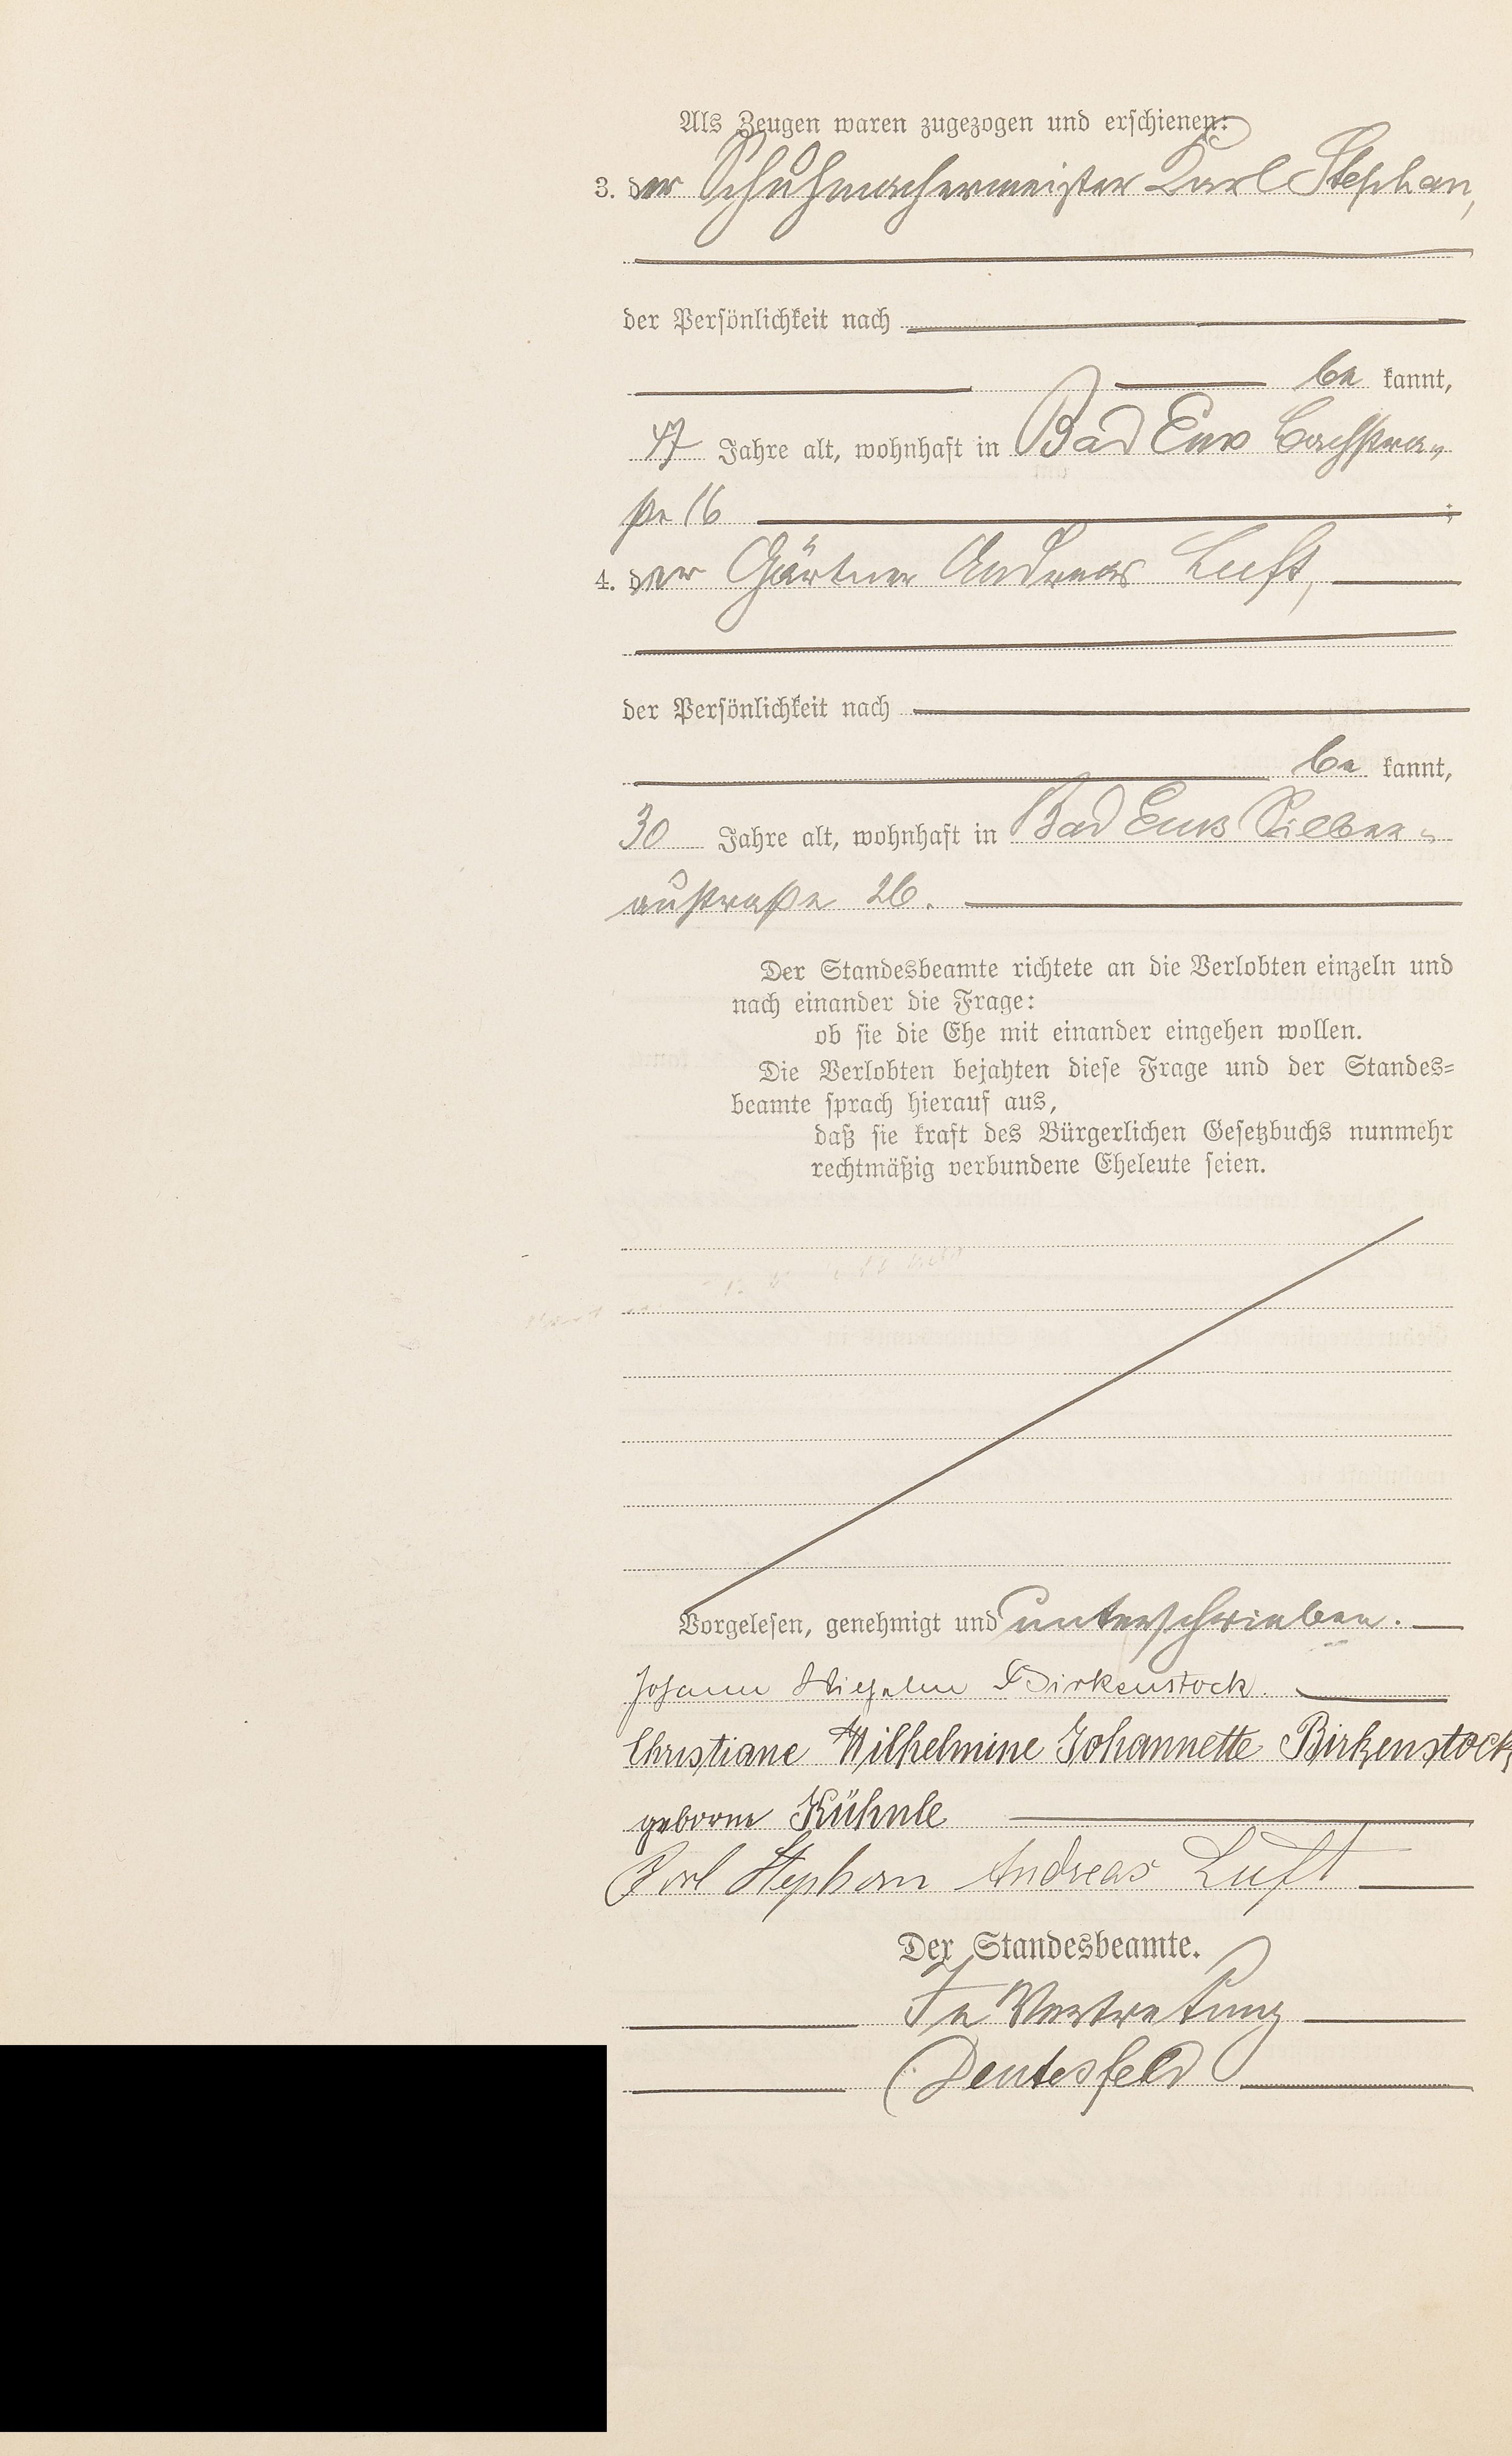 Als Zeugen waren zugezogen und erschienen:
3. der Schuhmachermeister Karl Stephan,
der Persönlichkeit nach
be kannt,
47 Jahre alt, wohnhaft in Bad Ems Bachstra-
ße 16 ;
4. der Gärtner Andreas Luft,
der Persönlichkeit nach
be kannt,
30 Jahre alt, wohnhaft in Bad Ems Silber-
austraße 26.
Der Standesbeamte richtete an die Verlobten einzeln und
nach einander die Frage:
ob sie die Ehe mit einander eingehen wollen.
Die Verlobten bejahten diese Frage und der Standes-
beamte sprach hierauf aus,
daß sie kraft des Bürgerlichen Gesetzbuchs nunmehr
rechtmäßig verbundene Eheleute seien.
Vorgelesen, genehmigt und unterschrieben.
Johann Wilhelm Birkenstock.
Christiane Wilhelmine Johannette Birkenstock,
geborne Kühnle
Karl Stephan Andreas Luft
Der Standesbeamte.
In Vertretung
Deutesfeld